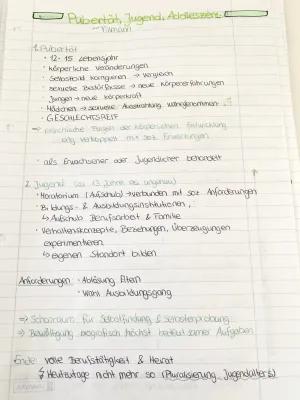 Pubertät, Jugend, Adoleszenz
~ Tillmann
1. Pubertät
· 12-15. Lebensjahr
· Körperliche Veränderungen
· Selbstbild korrigieren → Vergleich
· sexuelle Bedürfnisse → neue Körpererfahrungen
Jungen → neue Körperkraft
· Mädchen → sexuelle Ausstrahlung wahrgenommen
· GESCHLECHTSREIF
→ psychische Folgen der körperlichen Entwicklung
eng verknüpft mit soz. Erwartungen
· als Erwachsener oder Jugendlicher behandelt
2. Jugend (13 Jahre
· Moratorium (Aufschub) → verbunden mit soz. Anforderungen
· Bildungs- & Ausbildungsinstitutionen,
↳ Aufschub Berufsarbeit & Familie
· Verhaltenskonzepte, Beziehungen, Überzeugungen
experimentieren
↳ eigenen Standort bilden
Anforderungen · Ablösung Eltern
· Wahl Ausbildungsgang
→ Schonraum für Selbstfindung & Selbsterprobung
→ Bewältigung biografisch höchst bedeutsamer Aufgaben
Ende: volle Berufstätigkeit & Heirat
↯ Heutzutage nicht mehr so (Pluralisierung Jugendalters)